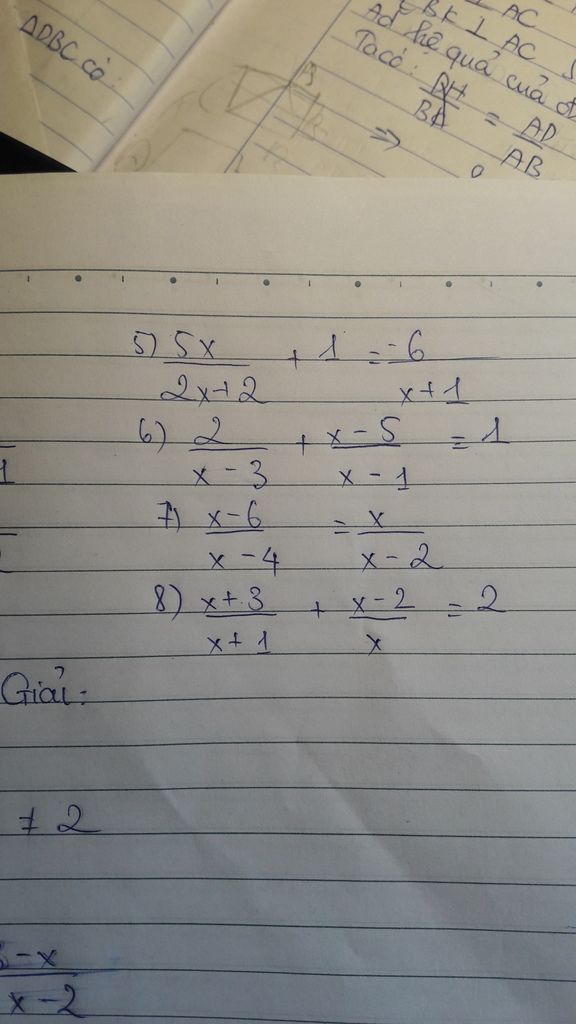 ΔDBC có:
BK ⊥ AC
Ad hệ quả của
Ta có: BH/BA = AD/AB
⇒
5) 5x/(2x+2) + 1 = -6/(x+1)
6) 2/(x-3) + (x-5)/(x-1) = 1
7) (x-6)/(x-4) = x/(x-2)
8) (x+3)/(x+1) + (x-2)/x = 2
Giải:
≠ 2
-x
x-2